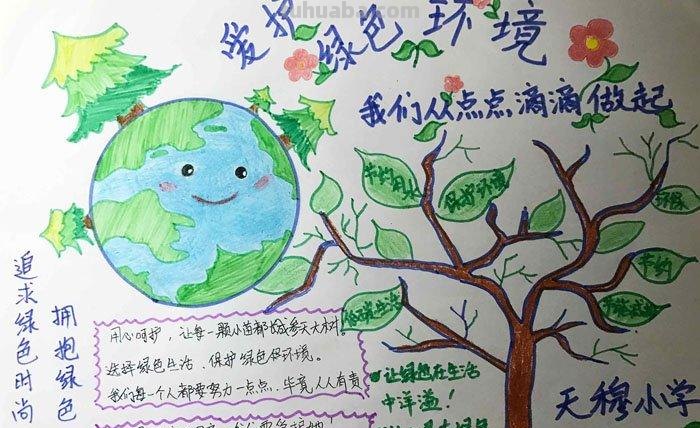 爱护绿色环境
我们从点点滴滴做起
节约用水
保护环境
环保
节约
追求绿色时尚
拥抱绿色
用心呵护，让每一颗小苗都长成参天大树。
选择绿色生活，保护绿色保环境。
我们每一个人都要努力一点点，毕竟人人有责
让绿色在生活
中洋溢！
天穆小学